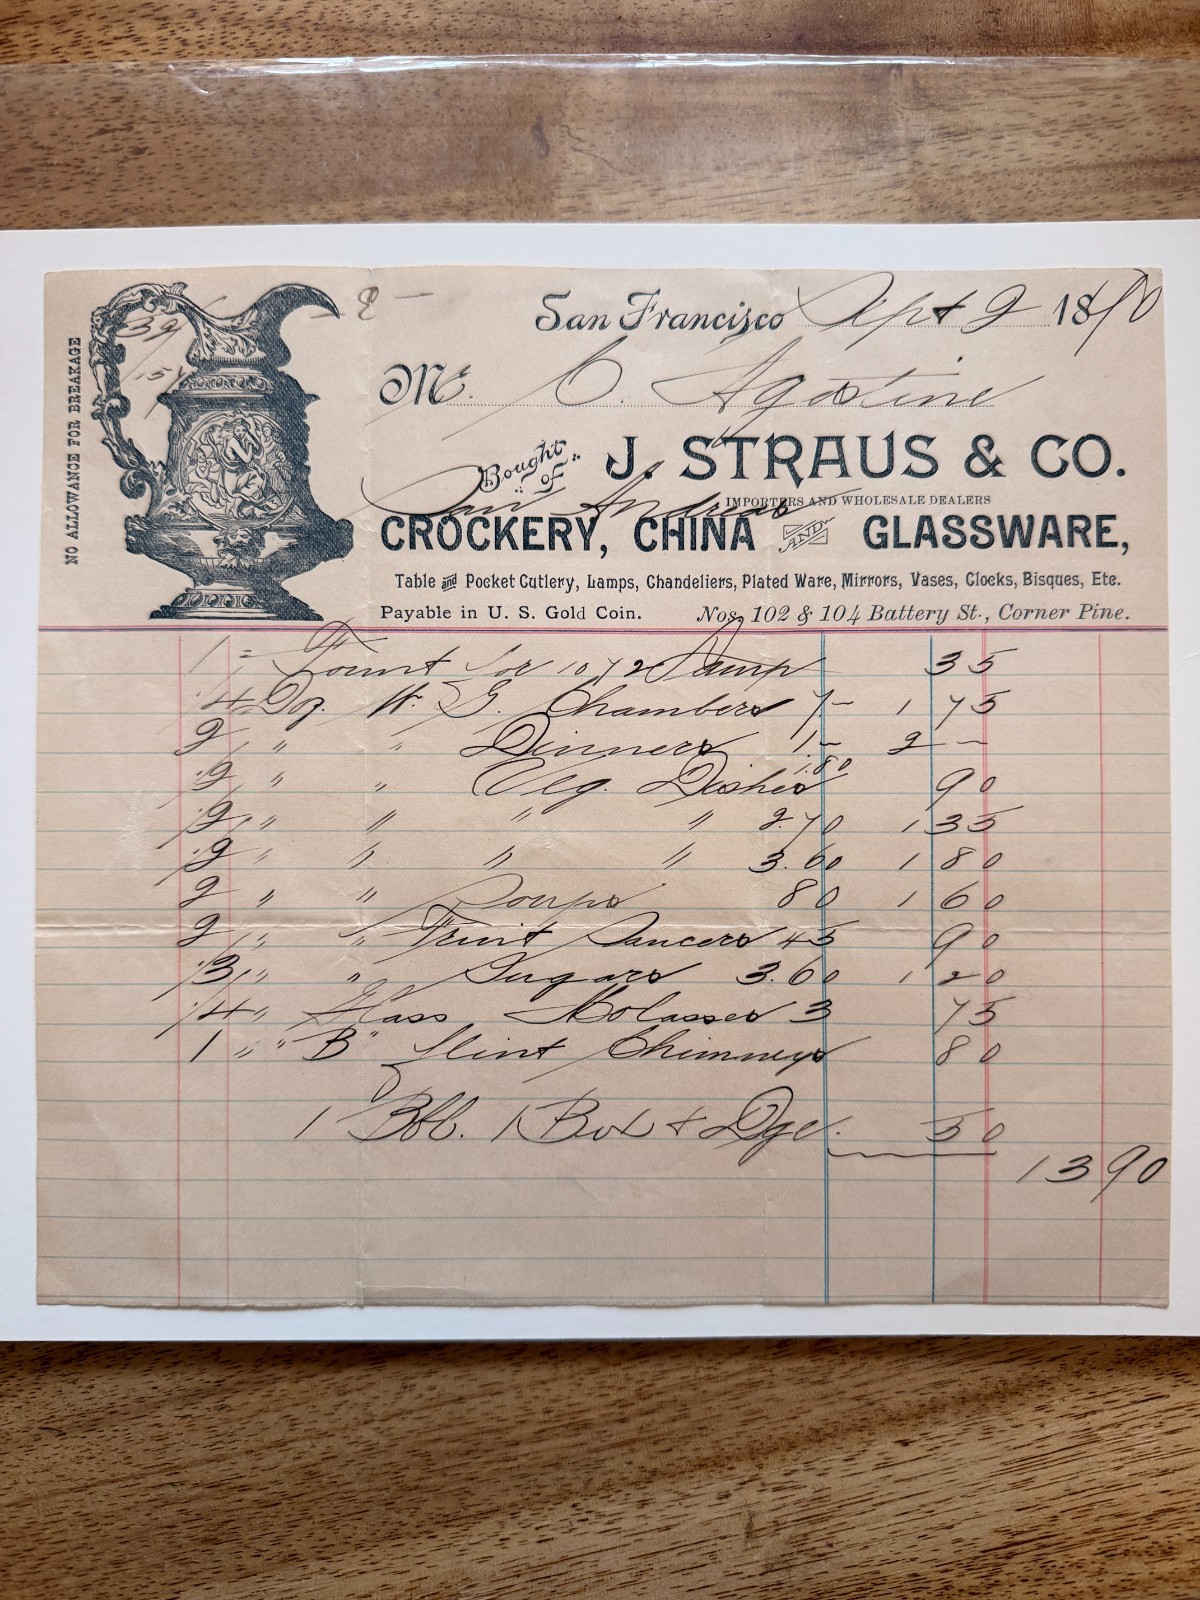 NO ALLOWANCE FOR BREAKAGE
39
15
San Francisco Sept 2 1890
Mr. C. Agostine
San Andreas
Bought of J. STRAUS & CO.
IMPORTERS AND WHOLESALE DEALERS
CROCKERY, CHINA AND GLASSWARE,
Table and Pocket Cutlery, Lamps, Chandeliers, Plated Ware, Mirrors, Vases, Clocks, Bisques, Etc.
Payable in U. S. Gold Coin. Nos. 102 & 104 Battery St., Corner Pine.
1 Fount for 1072 Lamp 35
1/4 Doz. W. G. Chambers 7.- 1 75
2 " " Dinners 1.- 2 -
1/2 " " Veg. Dishes 1.80 90
1/2 " " " " 2.70 1 35
1/2 " " " " 3.60 1 80
2 " " Soups 80 1 60
2 " " Fruit Saucers 45 90
1/3 " " Sugars 3.60 1 20
1/4 " Glass Molasses 3 75
1 " "B" Flint Chimneys 80
1 Bbl. 1 Box & Dge. 50
13 90